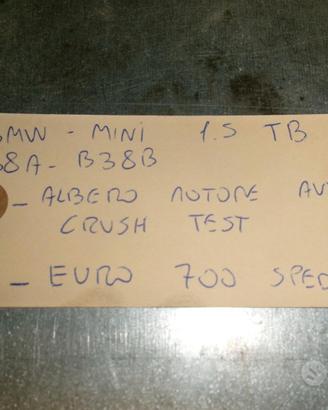 BMW - MINI 1.5 TB
B38A - B38B
- ALBERO MOTORE AV
CRUSH TEST
- EURO 700 SPED